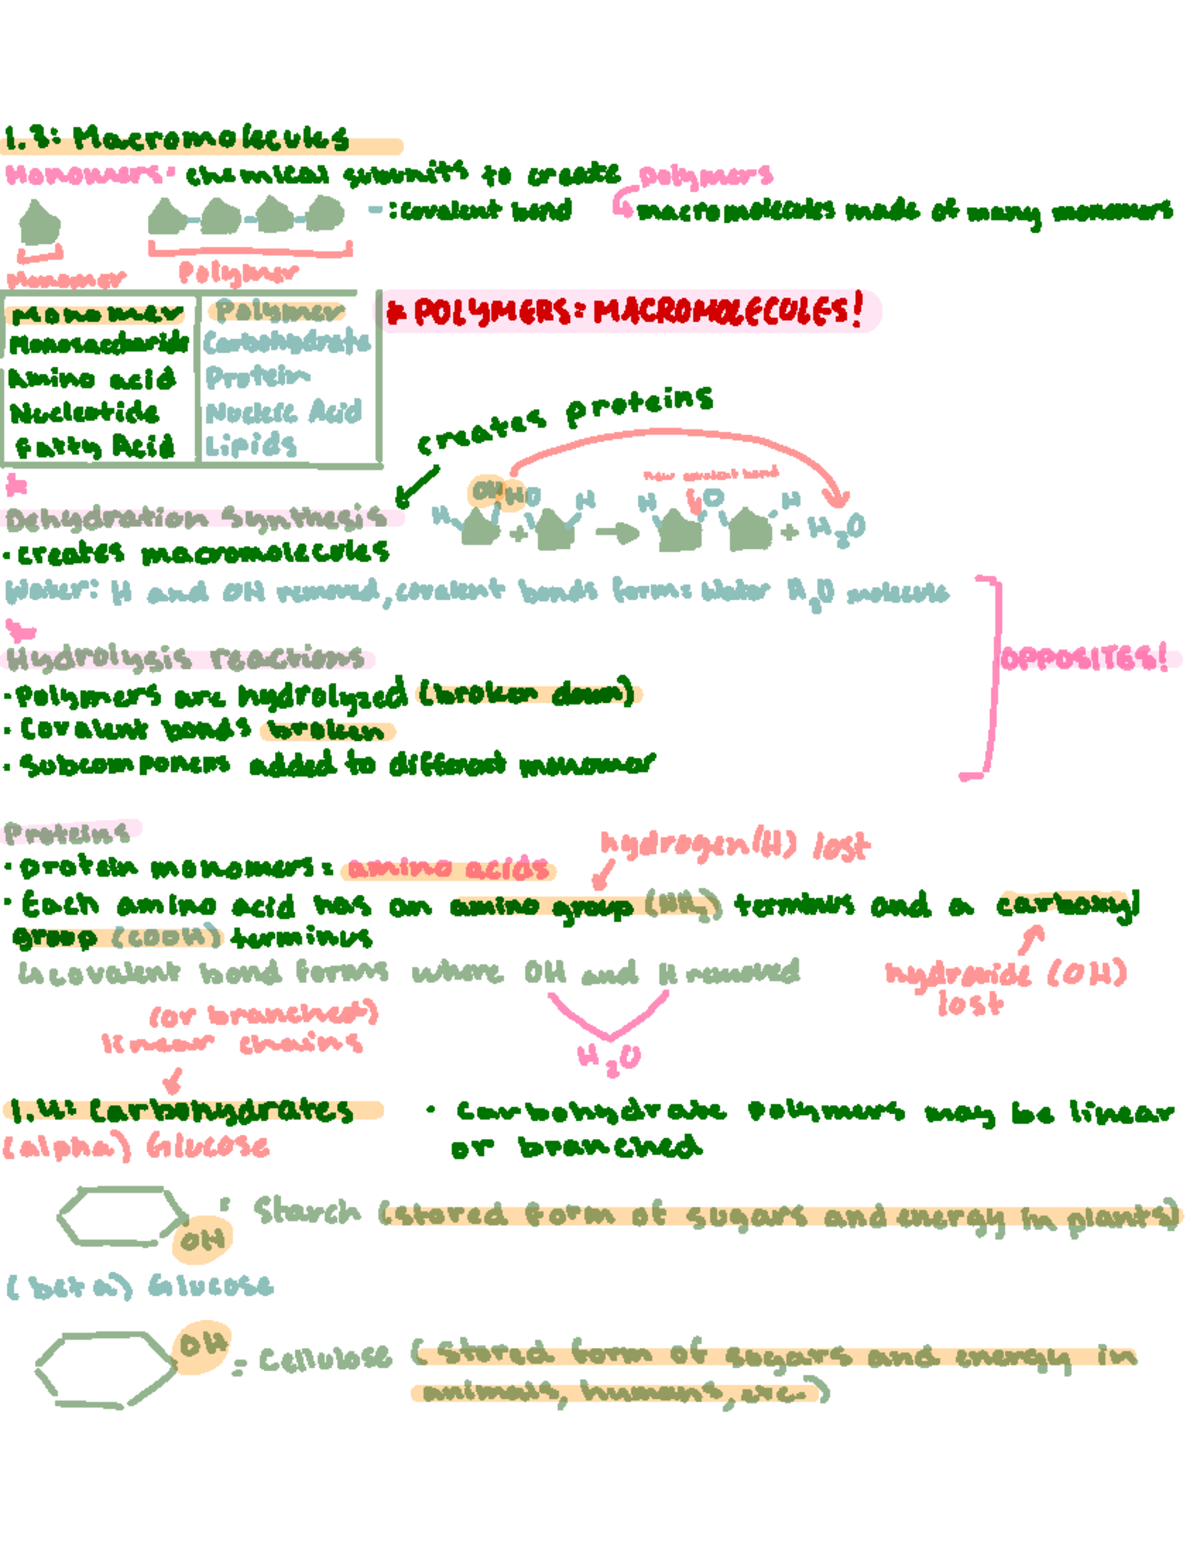 1.3: Macromolecules
Monomers: chemical subunits to create polymers
- : covalent bond
macromolecules made of many monomers
Monomer
Polymer
Monomer Polymer
Monosaccharide Carbohydrate
Amino acid Protein
Nucleotide Nucleic Acid
Fatty Acid Lipids
* POLYMERS = MACROMOLECULES!
creates proteins
*
Dehydration Synthesis
H OH HO H + → H O H + H2O
new covalent bond
• creates macromolecules
Water: H and OH removed, covalent bonds forms water H2O molecule
*
Hydrolysis reactions
• Polymers are hydrolyzed (broken down)
• Covalent bonds broken
• Subcomponents added to different monomer
OPPOSITES!
Proteins
• protein monomers = amino acids
hydrogen (H) lost
• Each amino acid has an amino group (NH2) terminus and a carboxyl
group (COOH) terminus
↳ covalent bond forms where OH and H removed
hydroxide (OH)
lost
H2O
(or branched)
linear chains
1.4: Carbohydrates
• Carbohydrate polymers may be linear
or branched
(alpha) Glucose
OH : Starch (stored form of sugars and energy in plants)
(beta) Glucose
OH = Cellulose (stored form of sugars and energy in
animals, humans, exc.)